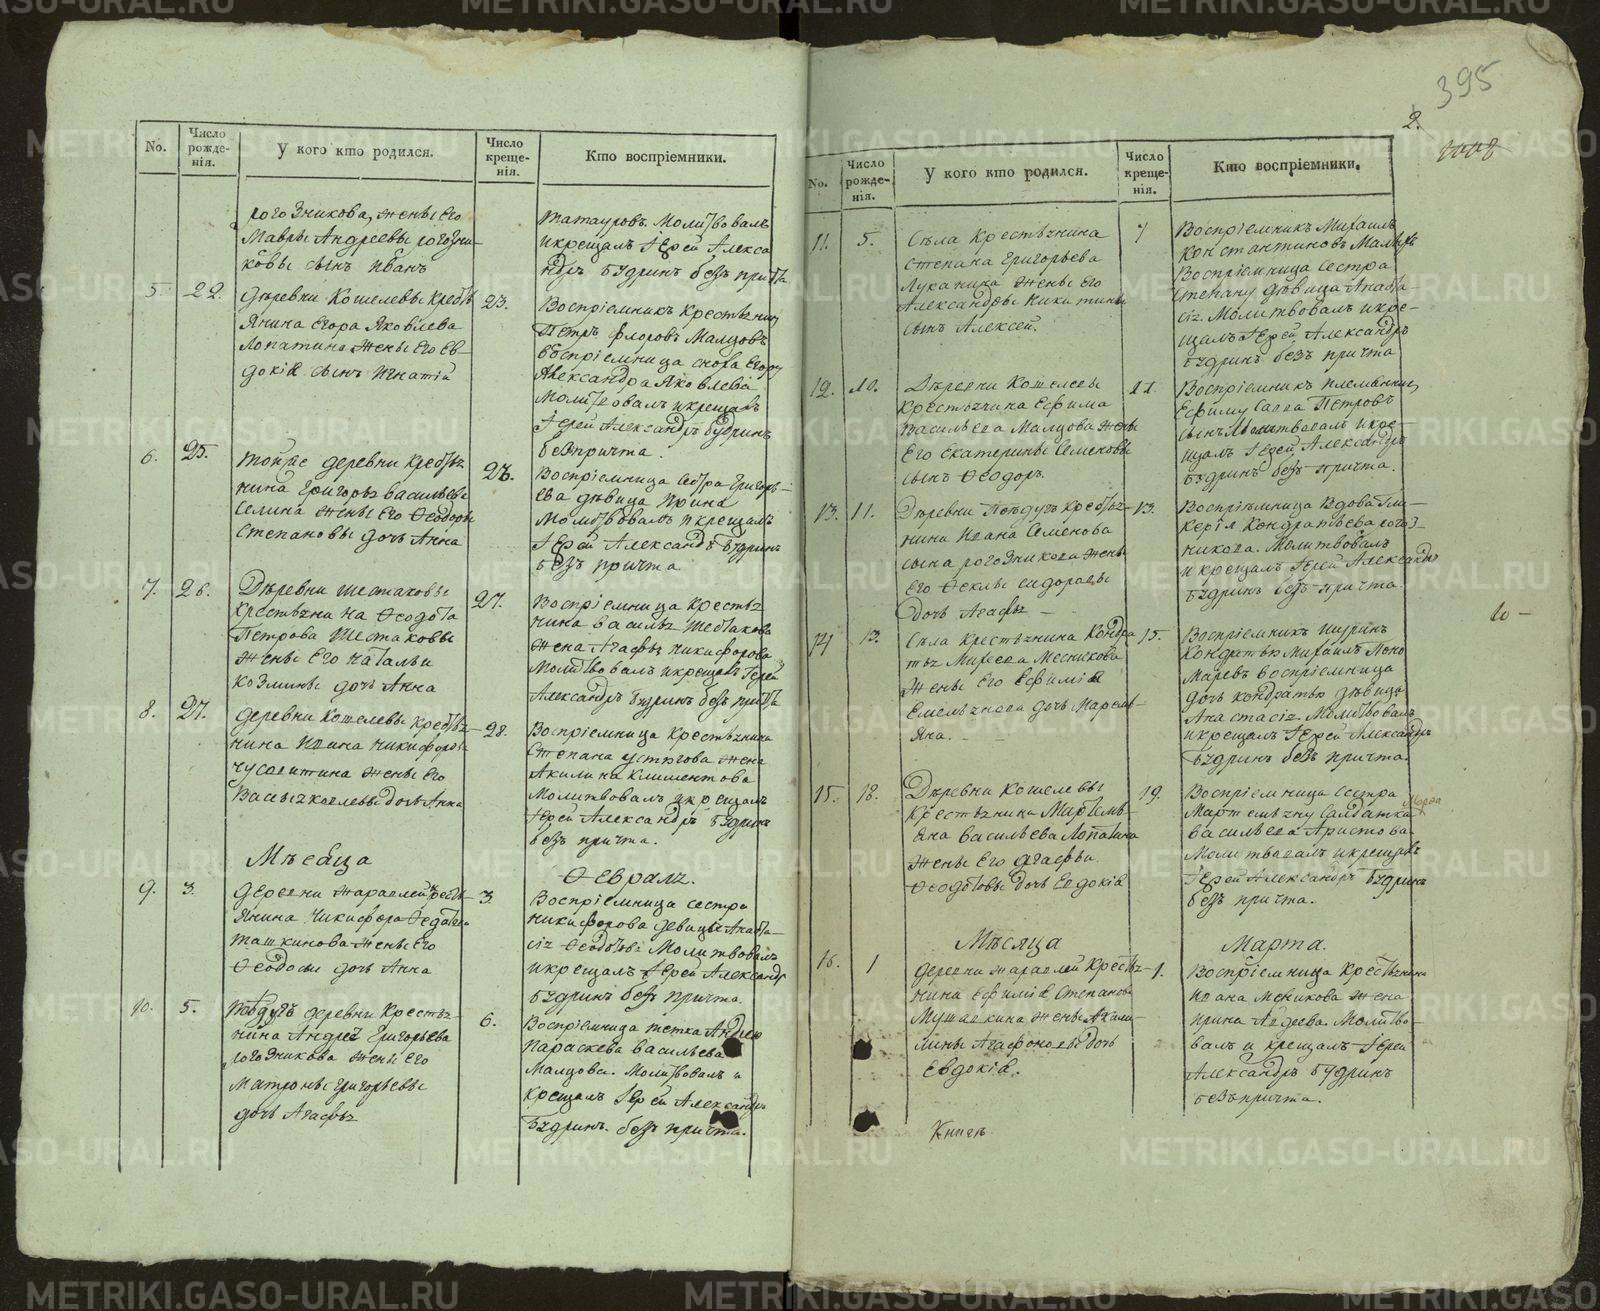 No.
Число рожде-нія.
У кого кто родился.
Число креще-нія.
Кто воспріемники.
рогозникова, жены его
Мавры Андреевы рогозни-
ковы сынъ Иванъ
татауровъ Молитвовалъ
и крещалъ Іерей Алекса
ндръ Будринъ безъ причта
5. 22.
деревни Кошелевы крестья
янина Егора Яковлева
Лопатина жены его Ев-
докіи сынъ Игнатій
23.
Воспріемникъ крестьянинъ
Петръ флоровъ Малцовъ
воспріемница сноха Егору
Александра Яковлева
Молитвовалъ и крещалъ
Іерей Александръ Будринъ
безпричта.
6. 25.
тойже деревни крестья
нина Григорья васильева
Селина жены его Ѳеодоры
Степановы дочь Анна
26.
Воспріемница сестра Григорь-
ева дѣвица Ирина
Молитвовалъ и крещалъ
Іерей Александръ Будринъ
безъ причта
7. 26.
Деревни Шестаковы
крестьянина Ѳеодота
Петрова Шестаковы
жены его натальи
Козмины дочь Анна
27.
Воспріемница крестья
нина василья Шестакова
жена Агафья никифорова
Молитвовалъ и крещалъ Іерей
Александръ Будринъ безъ причта
8. 27.
деревни Кошелевы крестья-
нина Ивана никифорова
чусовитина жены его
дочь Анна
28.
Воспріемница крестьянина
Степана устюгова жена
Акилина климентова
Молитвовалъ и крещалъ
Іерей Александръ Будринъ
безъ причта.
Мѣсяца
Ѳевраля.
9. 3.
деревни жаравлей крестья-
янина никифора Ѳедотова
ташкинова жены его
Ѳеодосьи дочь Анна
3
Воспріемница сестра
никифорова девица Анаста-
сія Ѳеодотова Молитвовалъ
и крещалъ Іерей Александръ
Будринъ безъ причта.
10. 5.
деревни крестья-
нина Андрея Григорьева
рогозникова жены его
Матроны григорьевы
дочь Агафья
6.
Воспріемница тетка Андрею
Параскева васильева
Малцова. Молитвовалъ и
крещалъ Іерей Александръ
Будринъ. безъ причта.
395
2.
No.
Число рожде-нія.
У кого кто родился.
Число креще-нія.
Кто воспріемники.
11. 5.
Села Крестьянина
степана григорьева
Луканина жены его
Александры никитины
сынъ Алексей.
7
Воспріемникъ Михаилъ
константиновъ
Воспріемница сестра
Степану дѣвица Анаста-
сія Молитвовалъ и кре-
щалъ Іерей Александръ
Будринъ безъ причта
12. 10.
Деревни Кошелевы
крестьянина Ефима
васильева Малцова жены
его екатерины семеновы
сынъ Ѳеодоръ.
11.
Воспріемникъ племянникъ
Ефиму Савва Петровъ
сынъ Молитвовалъ и кре-
щалъ Іерей Александръ
Будринъ безъ причта.
13. 11.
Деревни крестья-
нина Ивана Семенова
сына рогозникова жены
его Ѳеклы сидоровы
дочь Агафья
13.
Воспріемница вдова Гли-
керія Кондратьева рогоз-
никова. Молитвовалъ
и крещалъ Іерей Александръ
Будринъ безъ причта.
14 13.
Села крестьянина Кондра
тья Михеева Месникова
жены его Ефиміи
Емельянова дочь Маремь-
яна.
15.
Воспріемникъ шуринъ
Кондратью Михаилъ Поно
маревъ воспріемница
дочь кондратью дѣвица
Анастасія Молитвовалъ
и крещалъ Іерей Александръ
Будринъ безъ причта.
15. 18.
Деревни Кошелевы
крестьянина Мартемь-
яна васильева Лопатина
жены его Агафьи
Ѳеодотовы дочь Евдокія
19.
Воспріемница сестра
Мартемьяну Салдатка
Марѳа
васильева Аристова
Молитвовалъ и крещалъ
Іерей Александръ Будринъ
безъ причта.
Мѣсяца
Марта.
16. 1
деревни жаравлей крестья-
нина Степанова
жены Акили-
лины Агафоновы дочь
Евдокія.
1.
Воспріемница крестьянина
Ивана Меникова жена
ирина Авдеева. Молитво-
валъ и крещалъ Іерей
Александръ Будринъ
безъ причта.